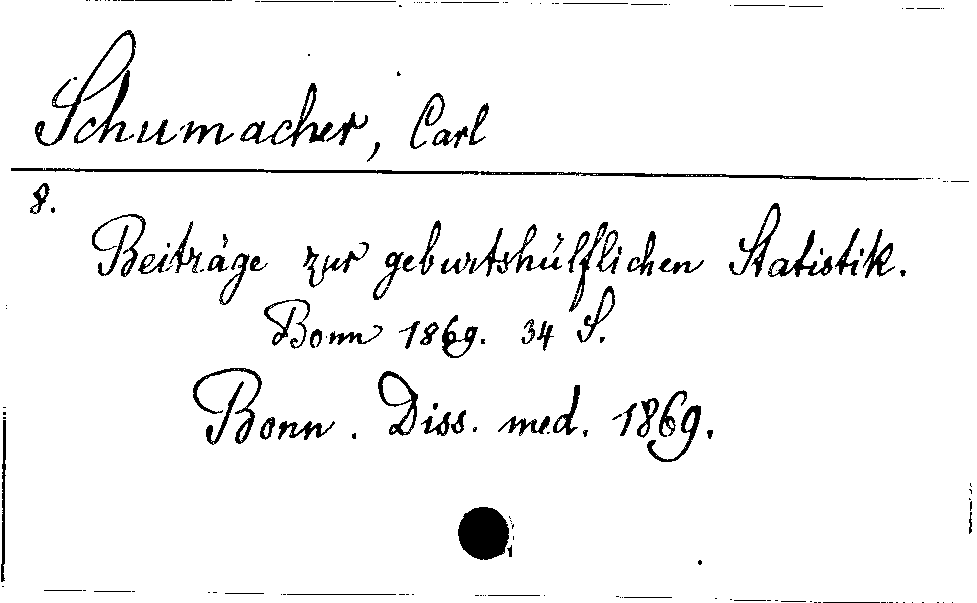 Schumacher, Carl
8.
Beiträge zur geburtshülflichen Statistik.
Bonn 1869. 34 S.
Bonn. Diss. med. 1869.